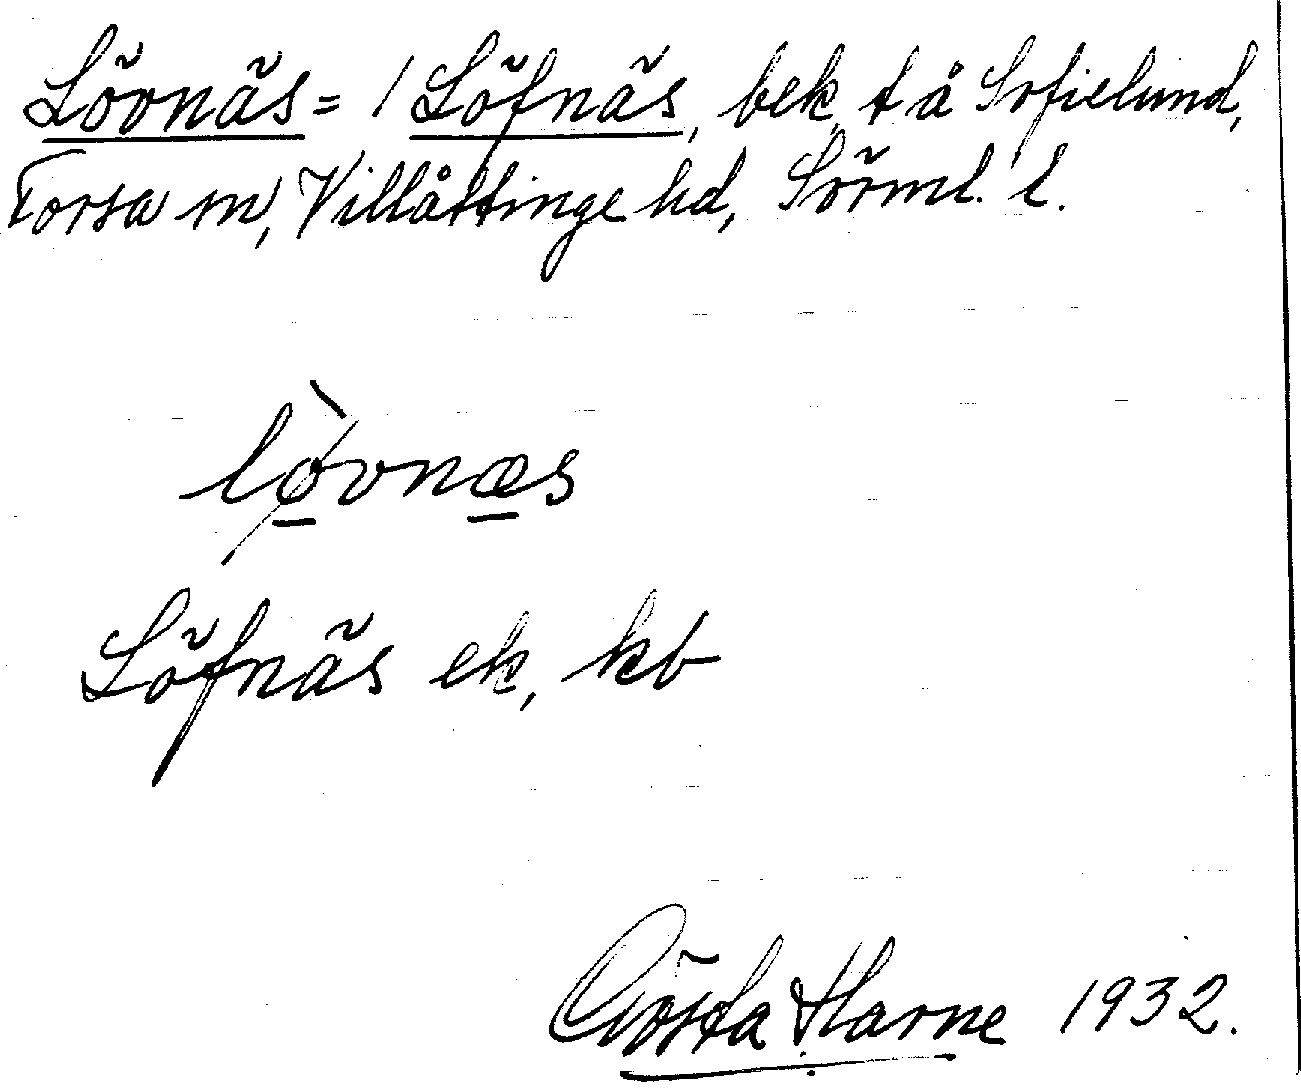 Lövnäs = 1 Löfnäs, bek, t å Sofielund,
Torsa sn, Villåttinge hd, Sörml. l.
lø̀vnæs
Löfnäs ek, kb
Gösta Harne 1932.